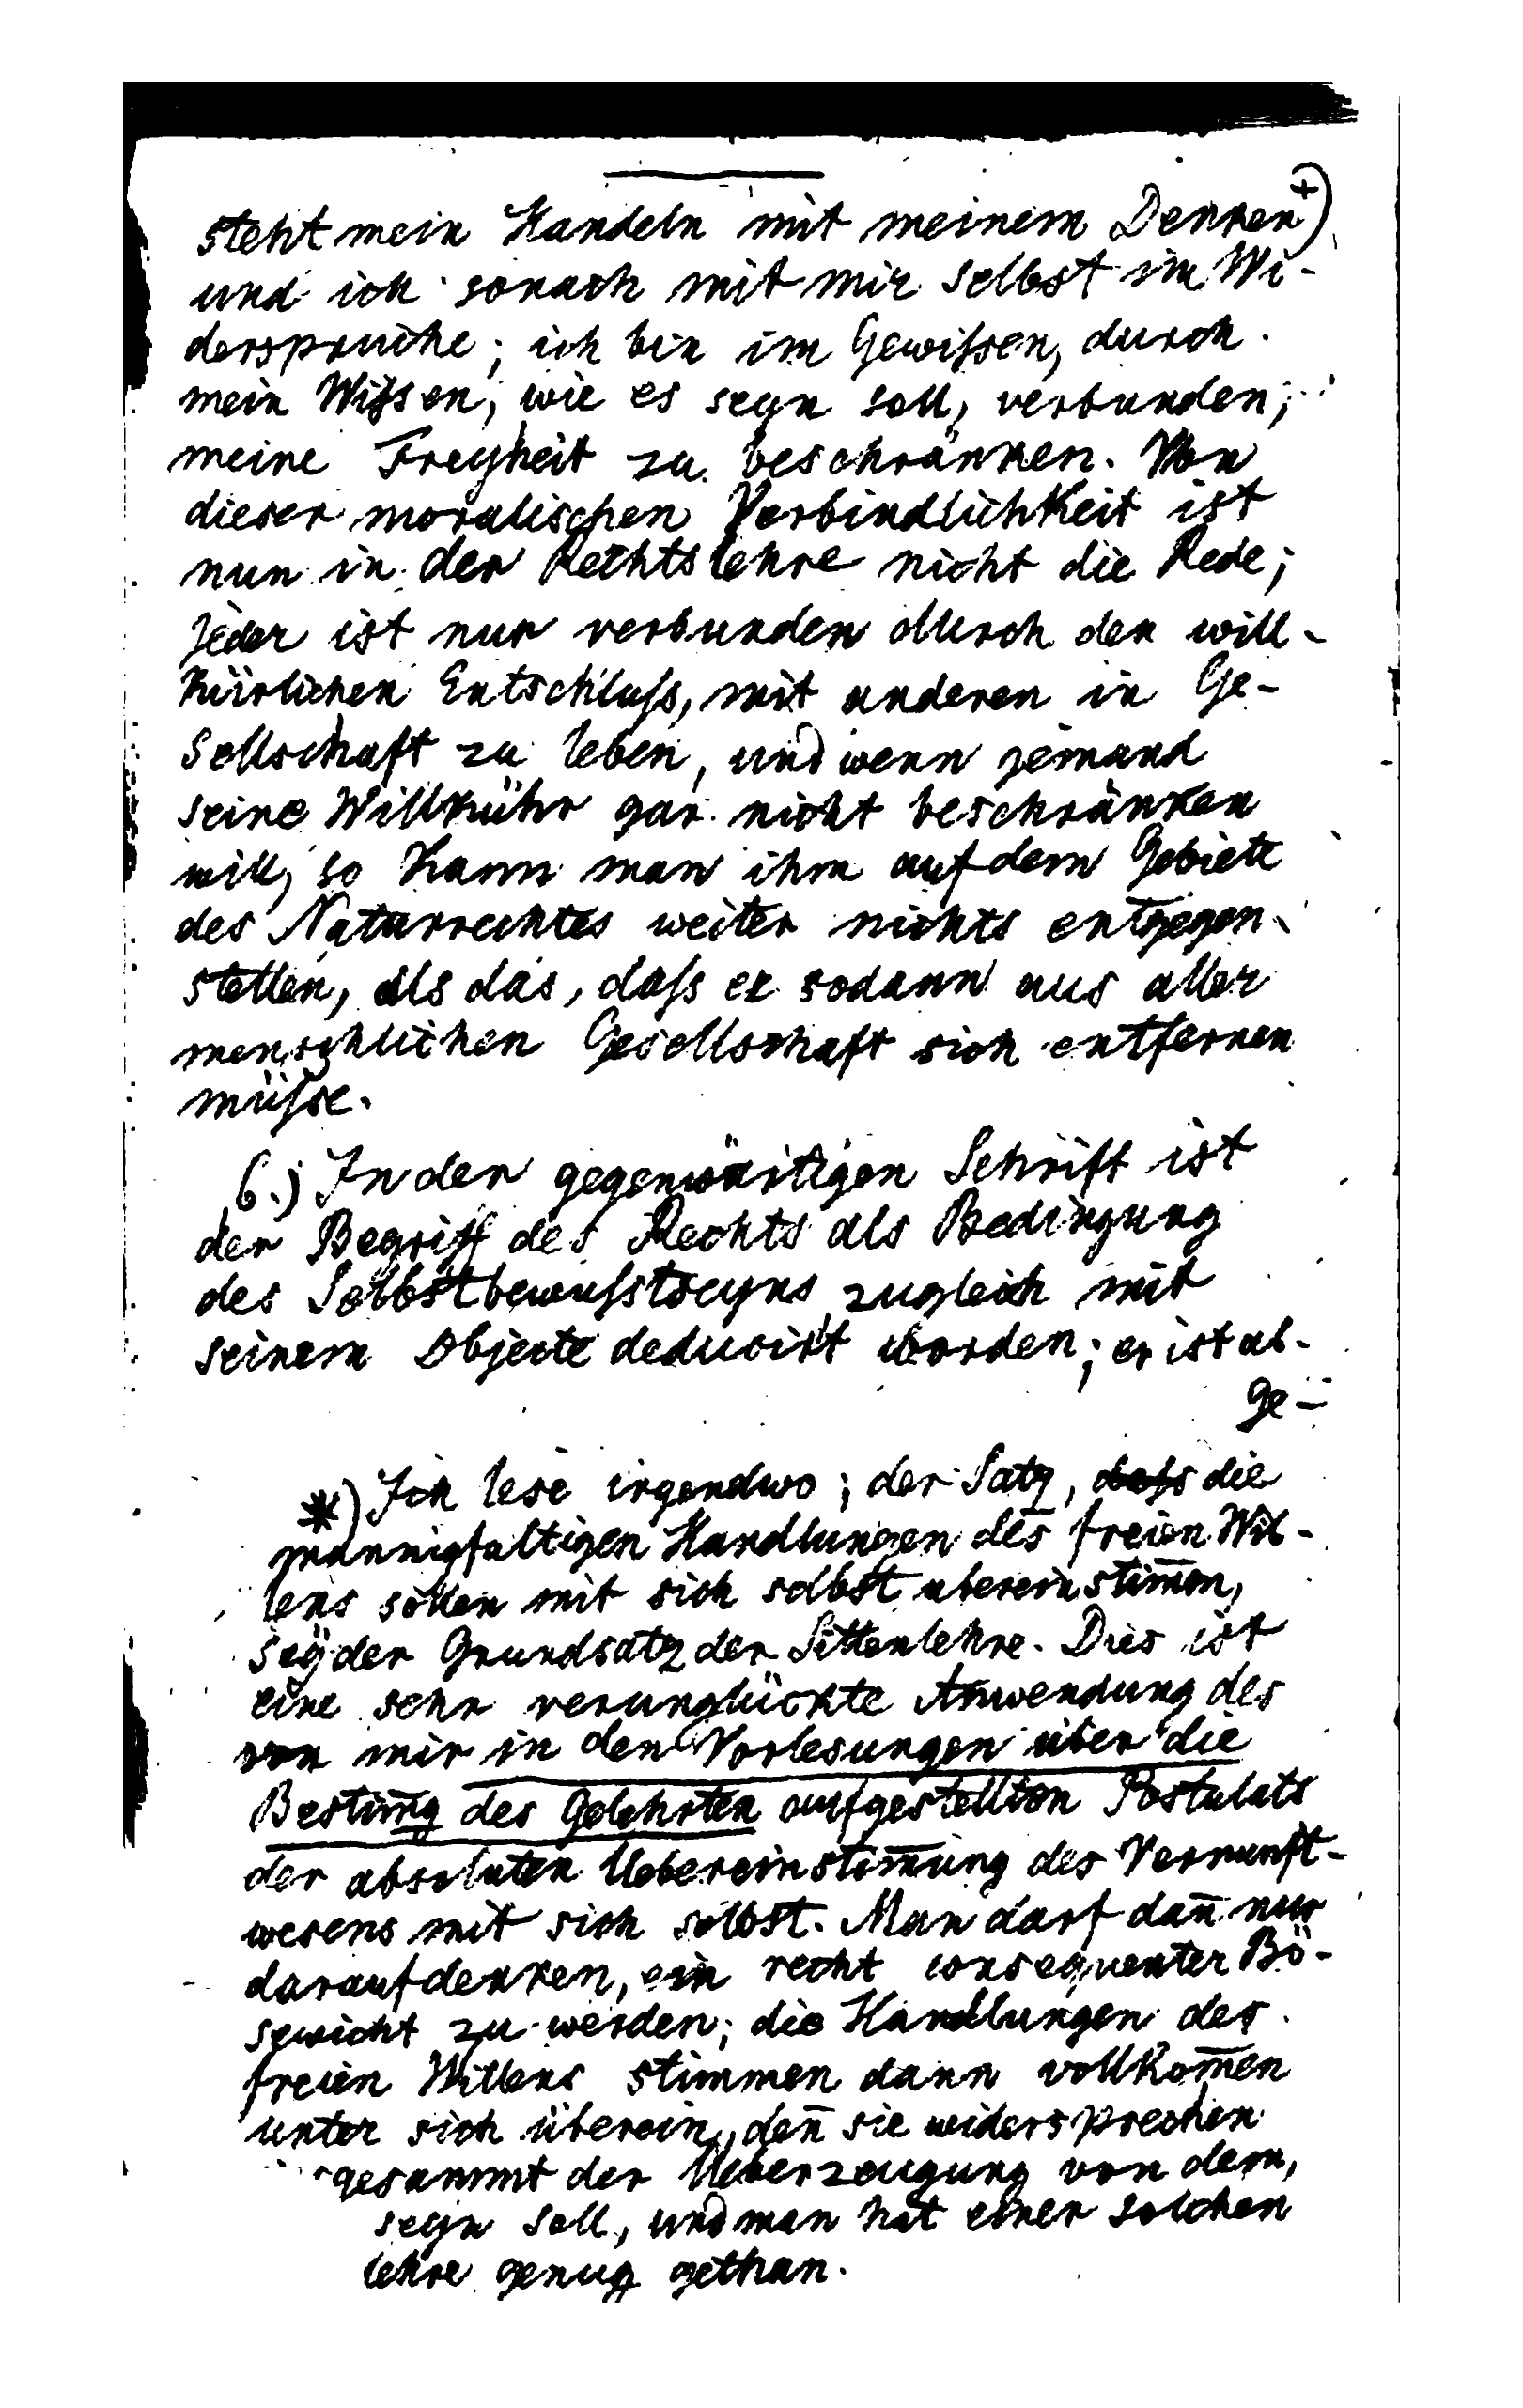 steht mein Handeln mit meinem Denken +)
und ich sonach mit mir selbst im Wi-
derspruche; ich bin im Gewißen, durch
mein Wißen, wie es seyn soll, verbunden,
meine Freyheit zu beschränken. Von
dieser moralischen Verbindlichkeit ist
nun in der Rechtslehre nicht die Rede;
jeder ist nur verbunden durch den will-
kürlichen Entschluß, mit anderen in Ge-
sellschaft zu leben, und wenn jemand
seine Willkühr gar nicht beschränken
will, so kann man ihm auf dem Gebiete
des Naturrechtes weiter nichts entgegen
stellen, als das, daß er sodann aus aller
menschlichen Gesellschaft sich entfernen
müße.
6.) In der gegenwärtigen Schrift ist
der Begriff des Rechts als Bedingung
des Selbstbewußtseyns zugleich mit
seinem Objecte deducirt worden; er ist ab-
ge-
*) Ich lese irgendwo; der Satz, daß die
mannigfaltigen Handlungen des freien Wil-
lens sollen mit sich selbst übereinstim̅en,
seÿ der Grundsatz der Sittenlehre. Dies ist
eine sehr verunglückte Anwendung des
von mir in den Vorlesungen über die
Bestim̅g des Gelehrten aufgestellten Postulats
der absoluten Uebereinstim̅ung des Vernunft-
wesens mit sich selbst. Man darf dan̅ nur
darauf denken, ein recht consequenter Bö-
sewicht zu werden; die Handlungen des
freien Willens stimmen dann vollkom̅en
unter sich überein, den̅ sie widersprechen
gesammt der Ueberzeugung von dem,
seyn soll, und man hat einer solchen
lehre genug gethan.